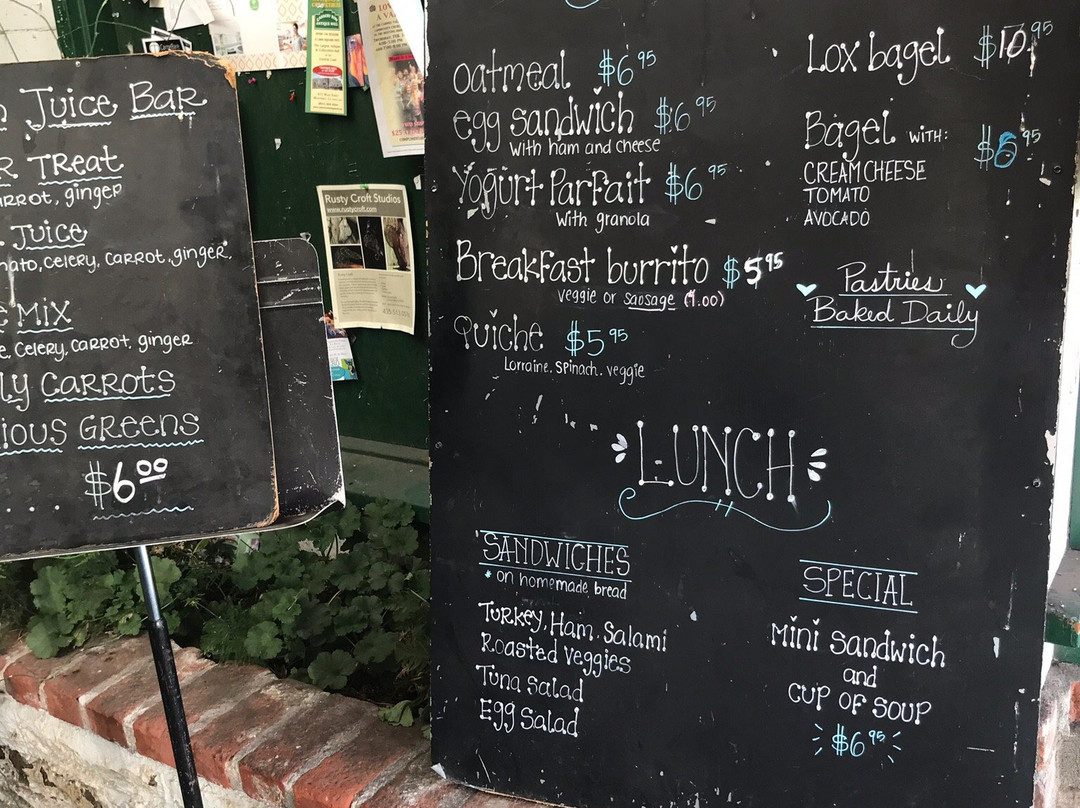 Juice Bar
Treat
ginger
Juice
celery, carrot, ginger.
Mix
celery, carrot, ginger
Carrots
Greens
$6.00
Rusty Croft Studios
www.rustycroft.com
oatmeal $6.95
egg sandwich $6.95
with ham and cheese
Yogurt Parfait $6.95
with granola
Breakfast burrito $5.95
veggie or sausage (1.00)
Quiche $5.95
Lorraine. Spinach. veggie
Lox bagel $10.95
Bagel with: $6.95
CREAM CHEESE
TOMATO
AVOCADO
Pastries
Baked Daily
LUNCH
SANDWICHES
on homemade bread
Turkey, Ham, Salami
Roasted Veggies
Tuna Salad
Egg Salad
SPECIAL
Mini Sandwich
and
CUP OF SOUP
$6.95